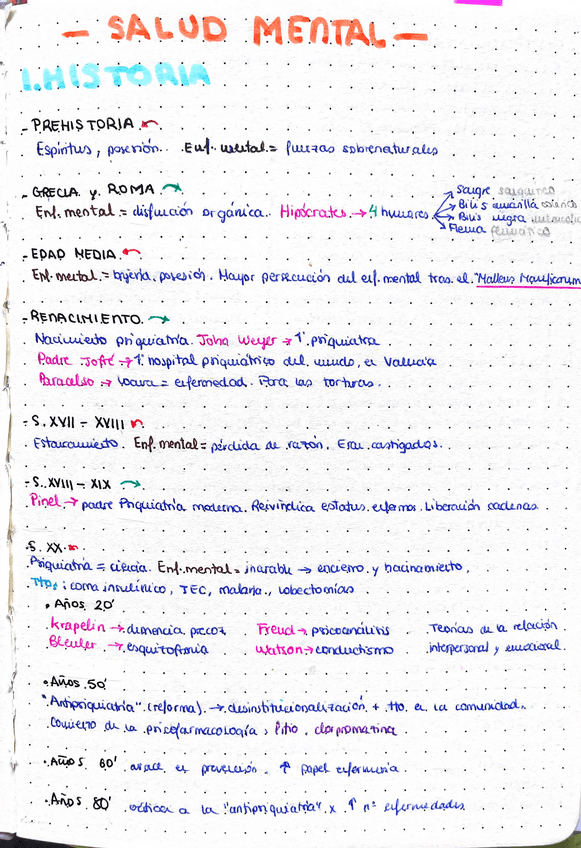 - SALUD MENTAL -
1. HISTORIA
- PREHISTORIA
Espíritus, posesión. Enf. mental = fuerzas sobrenaturales
- GRECIA y ROMA →
Sangre sanguíneo
Enf. mental = disfunción orgánica. Hipócrates → 4 humores
Bilis amarilla colérico
Bilis negra
Flema flemático
- EDAD MEDIA
Enf. mental = brujería, posesión. Mayor persecución del enf. mental tras el "Malleus Maleficarum
- RENACIMIENTO →
Nacimiento psiquiatría. John Weyer → 1º psiquiatra
Padre Jofré → 1º hospital psiquiátrico del mundo, en Valencia
Paracelso → locura = enfermedad. Para las torturas.
- S. XVII - XVIII
Estancamiento. Enf. mental = pérdida de razón. Eran castigados.
- S. XVIII - XIX →
Pinel → padre Psiquiatría moderna. Reivindica estatus enfermos. Liberación cadenas.
- S. XX
Psiquiatría = ciencia. Enf. mental = incurable → encierro y hacinamiento.
Tto: coma insulínico, TEC, malaria, lobectomías
• Años 20'
Krapelin → demencia precoz Freud → psicoanálisis Teorías de la relación
Bleuler → esquizofrenia Watson → conductismo interpersonal y emocional.
• Años 50'
"Antipsiquiatría" (reforma) → desinstitucionalización + tto en la comunidad.
Comienzo de la psicofarmacología, litio, clorpromazina
• Años 60' avance en prevención. ↑ papel enfermería.
• Años 80' crítica a la "antipsiquiatría" x ↑ nº enfermedades